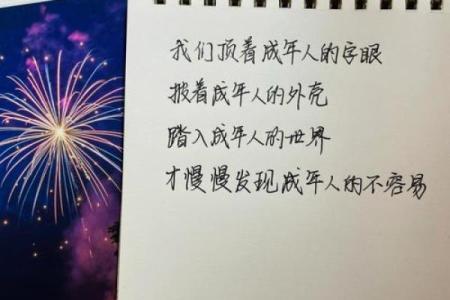 我们顶着成年人的字眼
披着成年人的外壳
踏入成年人的世界
才慢慢发现成年人的不容易